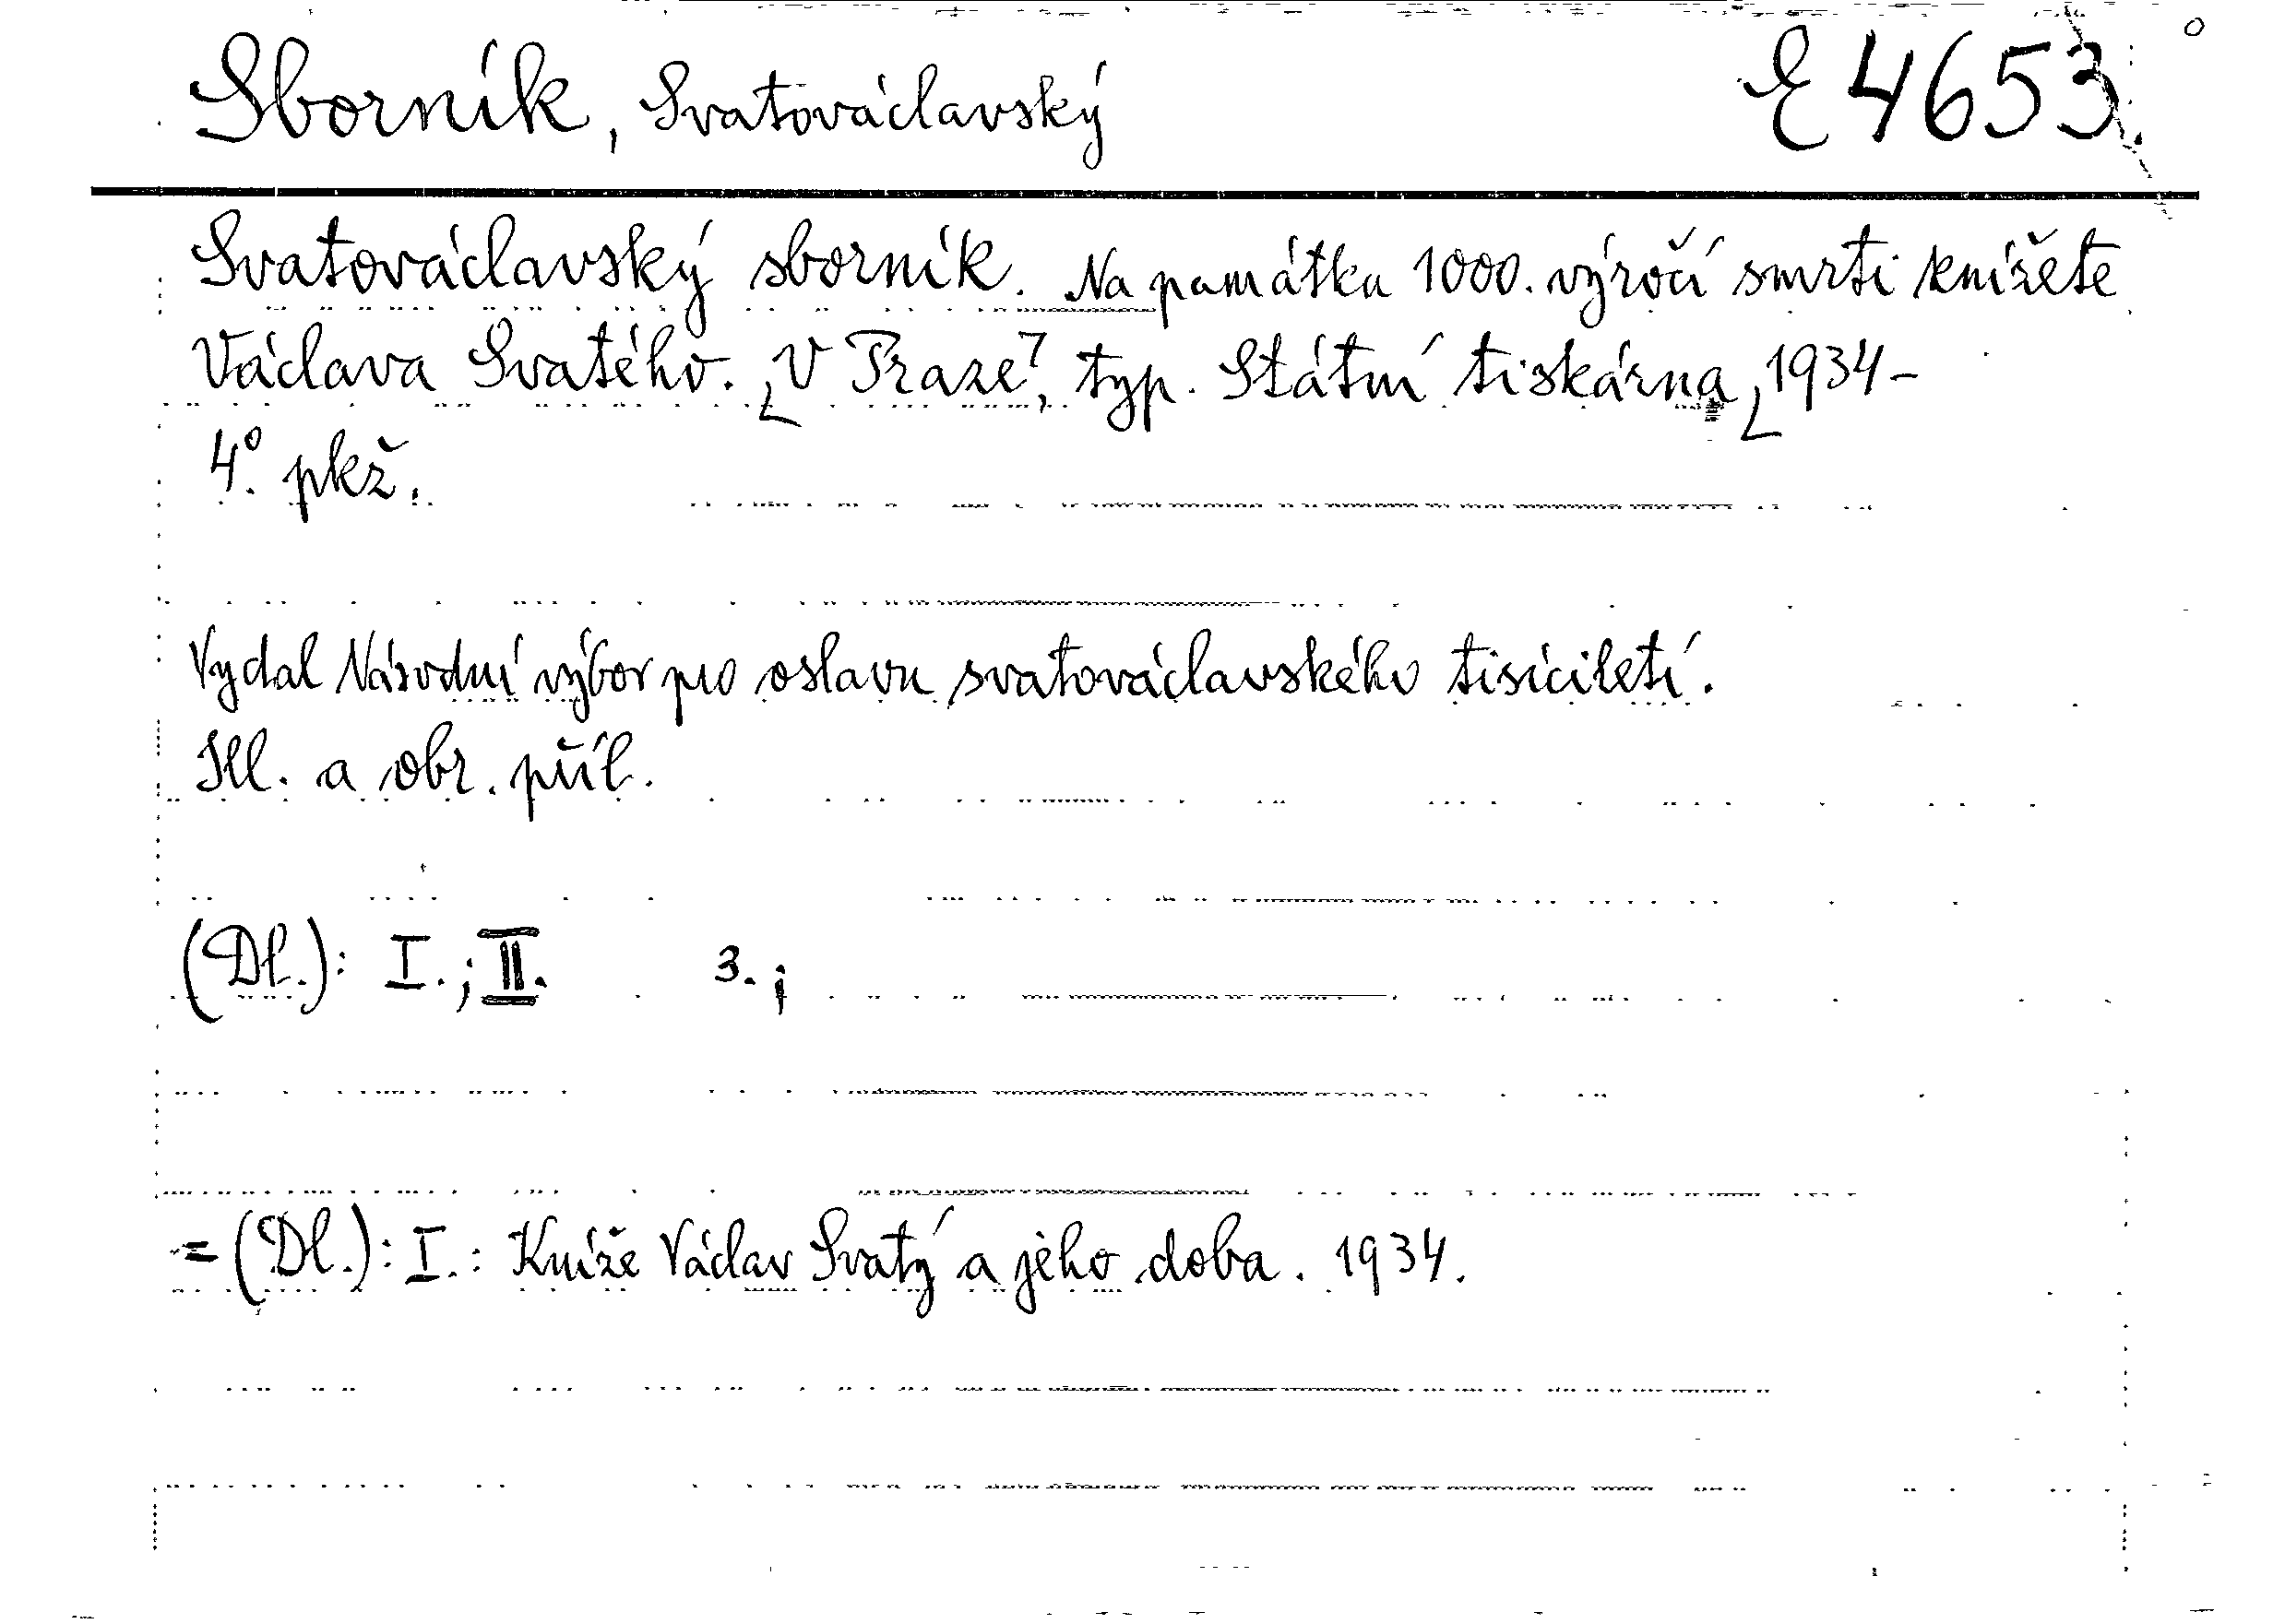 Sborník, Svatováclavský E 4653.
Svatováclavský sborník. Na památku 1000. výročí smrti knížete
Václava Svatého. [V Praze], typ. Státní tiskárna, [1934-
4°. pkž.
Vydal Národní výbor pro oslavu svatováclavského tisíciletí.
Ill. a obr. příl.
(Dl.): I.; II. 3.;
= (Dl.): I.: Kníže Václav Svatý a jeho doba. 1934.